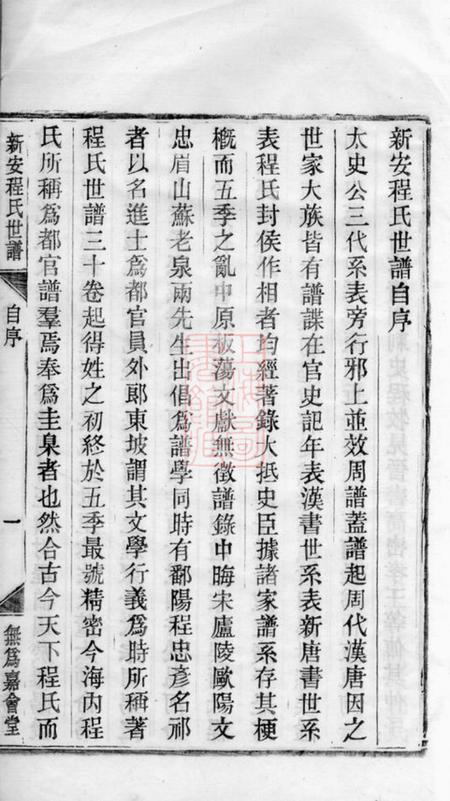 新安程氏世譜自序
太史公三代系表旁行邪上並效周譜蓋譜起周代漢唐因之
世家大族皆有譜諜在官史記年表漢書世系表新唐書世系
表程氏封侯作相者均經著錄大抵史臣據諸家譜系存其梗
概而五季之亂中原板蕩文獻無徵譜錄中晦宋廬陵歐陽文
忠眉山蘇老泉兩先生出倡爲譜學同時有鄱陽程忠彥名祁
者以名進士爲都官員外郎東坡謂其文學行義爲時所稱著
程氏世譜三十卷起得姓之初終於五季最號精密今海內程
氏所稱爲都官譜羣焉奉爲圭臬者也然合古今天下程氏而
新安程氏世譜
自序
一
無爲嘉會堂